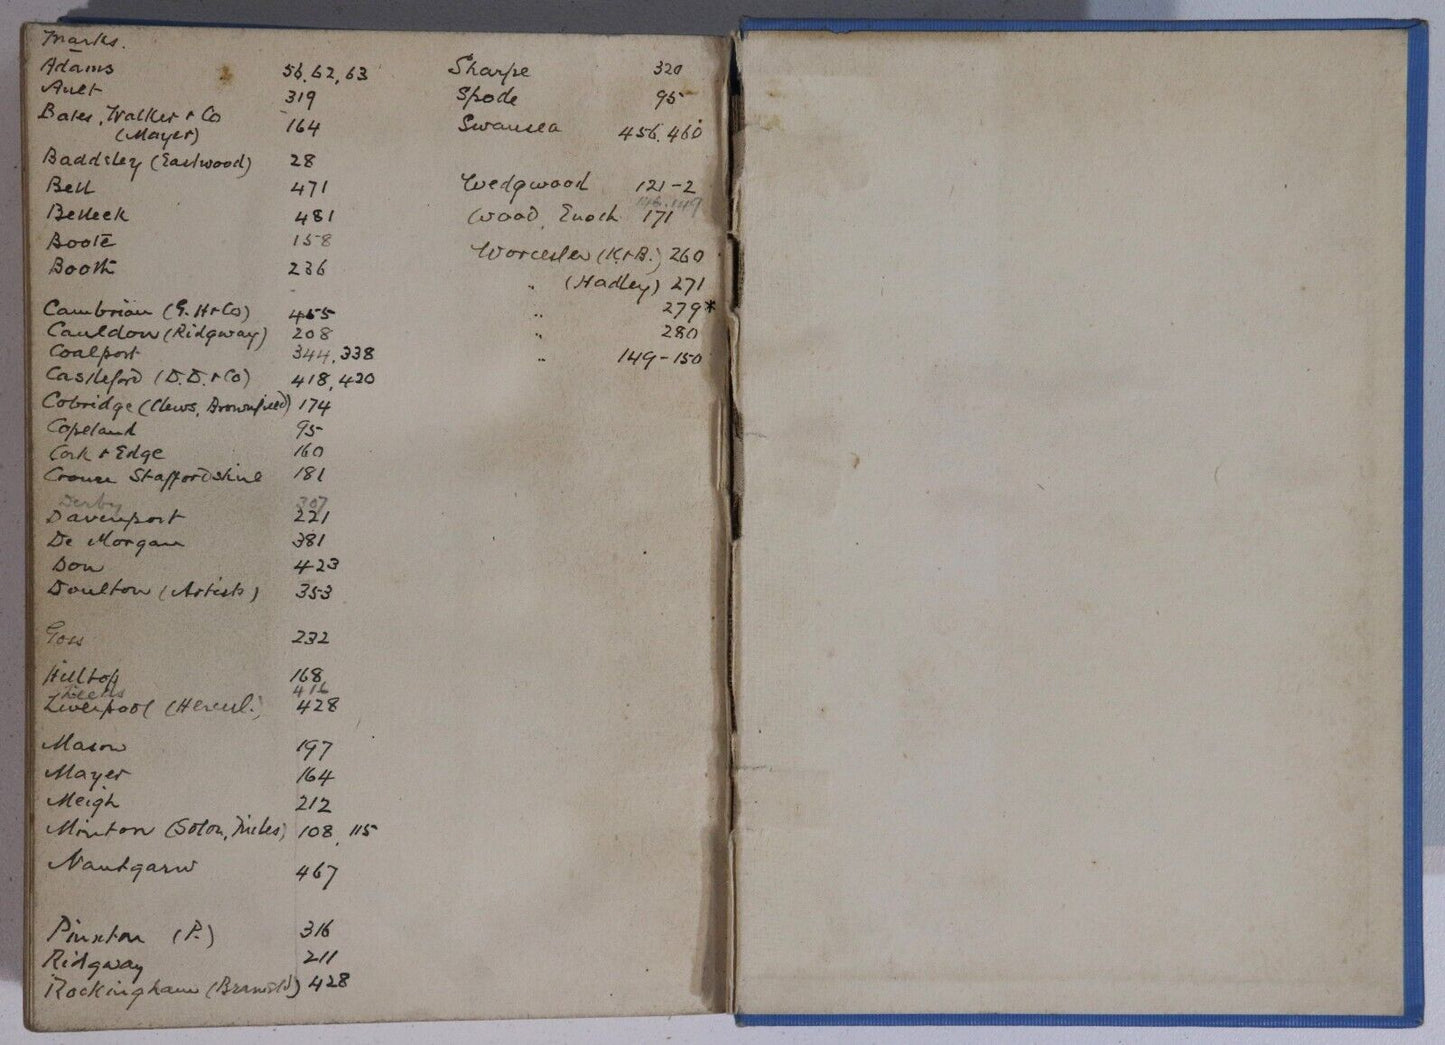 Marks.
Adams 56, 62, 63
Ault 319
Bates, Walker + Co
(Mayer) 164
Baddeley (Eastwood) 28
Bell 471
Belleek 481
Boote 158
Booth 236
Cambrian (G. H + Co) 455
Cauldon (Ridgway) 208
Coalport 344, 338
Castleford (D. D. + Co) 418, 420
Cobridge (Clews, Brownfield) 174
Copeland 95
Cork + Edge 160
Crown Staffordshire 181
Derby 307
Davenport 221
De Morgan 381
Don 423
Doulton (Artists) 353
Goss 232
Hilltop 168
Leeds 416
Liverpool (Hercul.) 428
Mason 197
Mayer 164
Meigh 212
Minton (Solon, Miles) 108, 115
Nantgarw 467
Pinxton (P.) 316
Ridgway 211
Rockingham (Brameld) 428
Sharpe 320
Spode 95
Swansea 456, 460
Wedgwood 121-2
146, 149
Wood, Enoch 171
Worcester (K. + B.) 260
" (Hadley) 271
" 279*
" 280
" 149-150